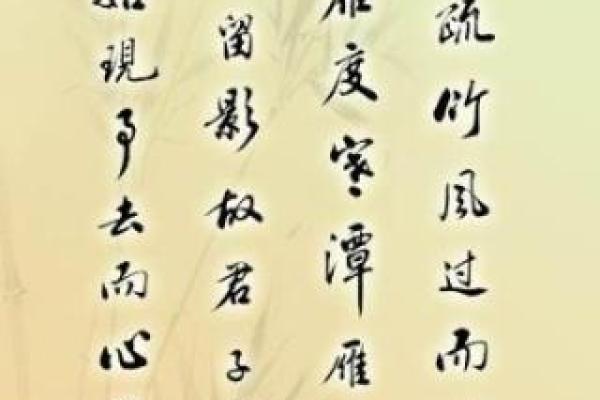 疏竹风过而
雁度寒潭雁
留影故君子
始現事去而心